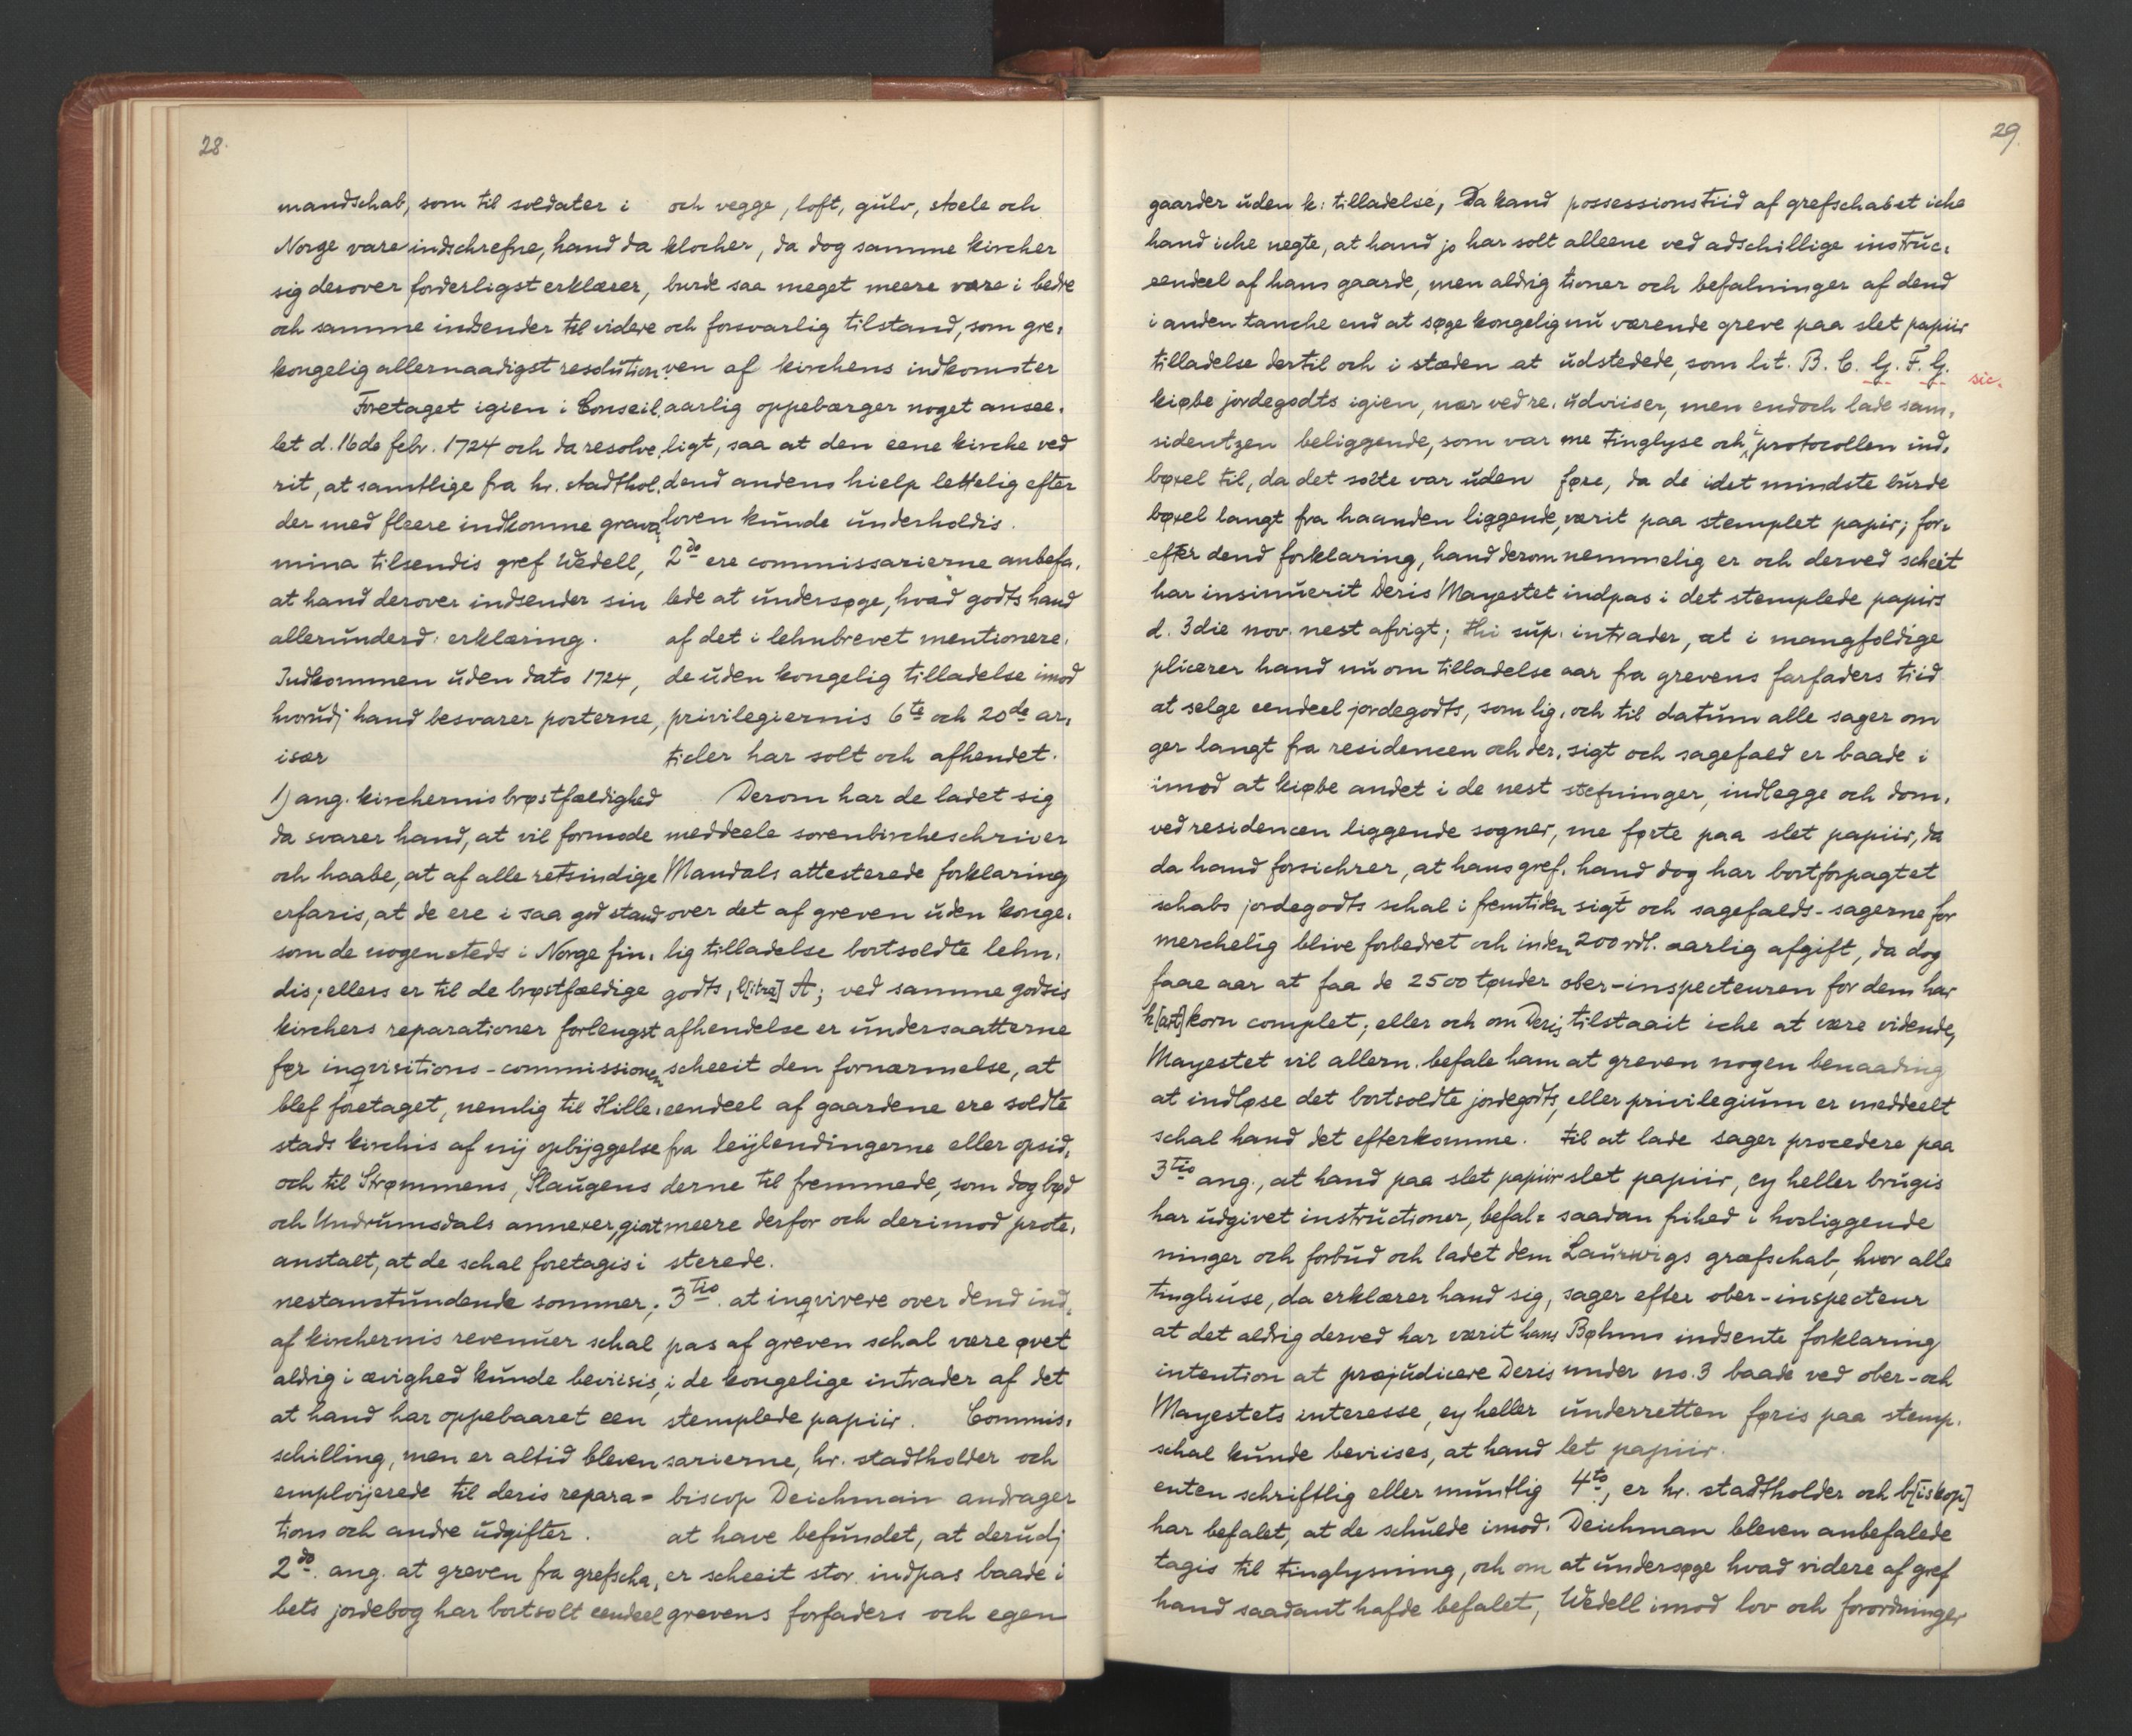 28.
mandschab, som til soldater i
Norge vare indschrefne, hand da
sig derover forderligst erklærer,
och samme indsender til videre
kongelig allernaadigst resolution.
Foretaget igien i Conseil,
let d. 16de febr. 1724 och da resolve,
rit, at samtlige fra hr. stadthol,
der med fleere indkomne grava,
mina tilsendis gref Wedell,
at hand derover indsender sin
allerunderd: erklæring.
Indkommen uden dato 1724,
hvorudj hand besvarer posterne,
især
1) ang. kirchernis brøstfældighed
da svarer hand, at vil formode
och haabe, at af alle retsindige
erfaris, at de ere i saa god stand
som de nogensteds i Norge fin,
dis; ellers er til de brøstfældige
kirchers reparationer forlengst
før inqvisitions-commissionen
blef foretaget, nemlig til Hille,
stads kirchis af nÿ opbÿggelse
och til Strømmens, Slaugens
och Undrumsdals annexer, giort
anstalt, at de schal foretagis i
nestanstundende sommer;
af kirchernis revenuer schal
aldrig i ævighed kunde beviisis,
at hand har oppebaaret een
schilling, men er altid bleven
emploÿerede til deris repara=
tions och andre udgifter.
2do. ang. at greven fra grefscha,
bets jordebog har bortsolt eendeel
och vegge, loft, gulv, stoele och
klocher, da dog samme kircher
burde saa meget meere være i bedre
och forsvarlig tilstand, som gre,
ven af kirchens indkomster
aarlig oppebærger noget ansee,
ligt, saa at den eene kirche ved
dend andens hielp lettelig efter
loven kunde underholdis.
2do ere commissarierne anbefa,
lede at undersøge, hvad godts hand
af det i lehnbrevet mentionere,
de uden kongelig tilladelse imod
privilegiernis 6te och 20de ar,
ticler har solt och afhendet.
Derom har de ladet sig
meddeele sorenbircheschriver
Mandals attesterede forklaring
over det af greven uden konge,
lig tilladelse bortsoldte lehn,
godts, l[itra] A; ved samme godsis
afhendelse er undersaatterne
scheeit den fornærmelse, at
eendeel af gaardene ere soldte
fra leÿlendingerne eller opsid,
derne til fremmede, som dog bød
meere derfor och derimod prote,
sterede.
3tio. at inqvirere over dend ind,
pas af greven schal være øvet
i de kongelige intrader af det
stemplede papiir. Commis,
sarierne, hr. stadtholder och
biscop Deichman andrager
at have befundet, at derudj
er scheeit stor indpas baade i
grevens forfaders och egen
29.
gaarder uden k: tilladelse, Da kand
hand iche negte, at hand jo har solt
eendeel af hans gaarde, men aldrig
i anden tanche end at søge kongelig
tilladelse dertil och i stæden at
kiøbe jordegodts igien, nær ved re,
sidentzen beliggende, som var
bøxel til, da det solte var uden
bøxel langt fra haanden liggende,
efter dend forklaring, hand derom
har insinuerit Deris Mayestet
d. 3die nov. nest afvigt; thi sup,
plicerer hand nu om tilladelse
at selge eendeel jordegodts, som lig,
ger langt fra residencen och der,
imod at kiøbe andet i de nest
ved residencen liggende sogner,
da hand forsichrer, at hans gref,
schabs jordegodts schal i fremtiden
merchelig blive forbedret och inden
faae aar at faa de 2500 tønder
h[art]korn complet; eller och om Deris
Mayestet vil allern. befale ham
at indløse det bortsoldte jordegodts,
schal hand det efterkomme.
3tio ang., at hand paa slet papiir
har udgivet instructioner, befal=
ninger och forbud och ladet dem
tinghuse, da erklærer hand sig,
at det aldrig derved har værit hans
intention at præjudicere Deris
Mayestets interesse, ey heller
schal kunde beviises, at hand
enten schriftlig eller muntlig
har befalet, at de schulde imod,
tagis til tinglysning, och om
hand saadant hafde befalet,
possessions tiid af grefschabet iche
alleene ved adschillige instruc,
tioner och befalninger af dend
nu værende greve paa slet papiir
udstedede, som lit. B. C. G. F. G.
sic.
udviiser, men endoch lade sam,
me tinglyse och i protocollen ind,
føre, da de idet mindste burde
værit paa stemplet papir; for,
nemmelig er och derved scheeit
indpas i det stemplede papirs
intrader, at i mangfoldige
aar fra grevens farfaders tiid
och til datum alle sager om
sigt och sagefald er baade i
stefninger, indlegge och dom,
me førte paa slet papiir, da
hand dog har bortforpagtet
sigt och sagefalds-sagerne for
200 rdl. aarlig afgift, da dog
ober-inspecteuren for dem har
tilstaait iche at være vidende,
at greven nogen benaading
eller privilegium er meddeelt
til at lade sager procedere paa
slet papiir, ey heller brugis
saadan frihed i hosliggende
Laurwigs græfschab, hvor alle
sager efter ober-inspecteur
Bøhms indsente forklaring
under no. 3 baade ved ober- och
underretten føris paa stemp,
let papiir.
4to, er hr. stadtholder och b[iskop]
Deichman bleven anbefalede
at undersøge hvad videre af gref
Wedell imod lov och forordninger